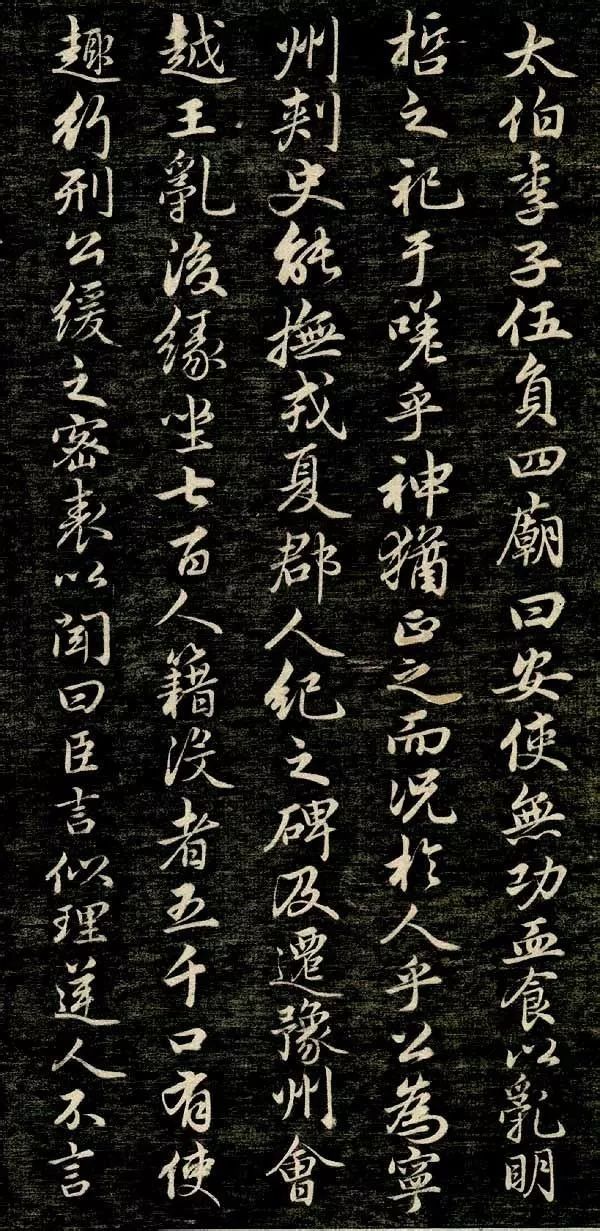 太伯季子伍負四廟曰安使無功血食以亂明
哲之祀于嘆乎神猶正之而況於人乎公為寧
州刺史能撫戎夏郡人紀之碑及遷豫州會
越王亂後緣坐七百人籍沒者五千口有使
趣行刑公緩之密表以聞曰臣言似理逆人不言